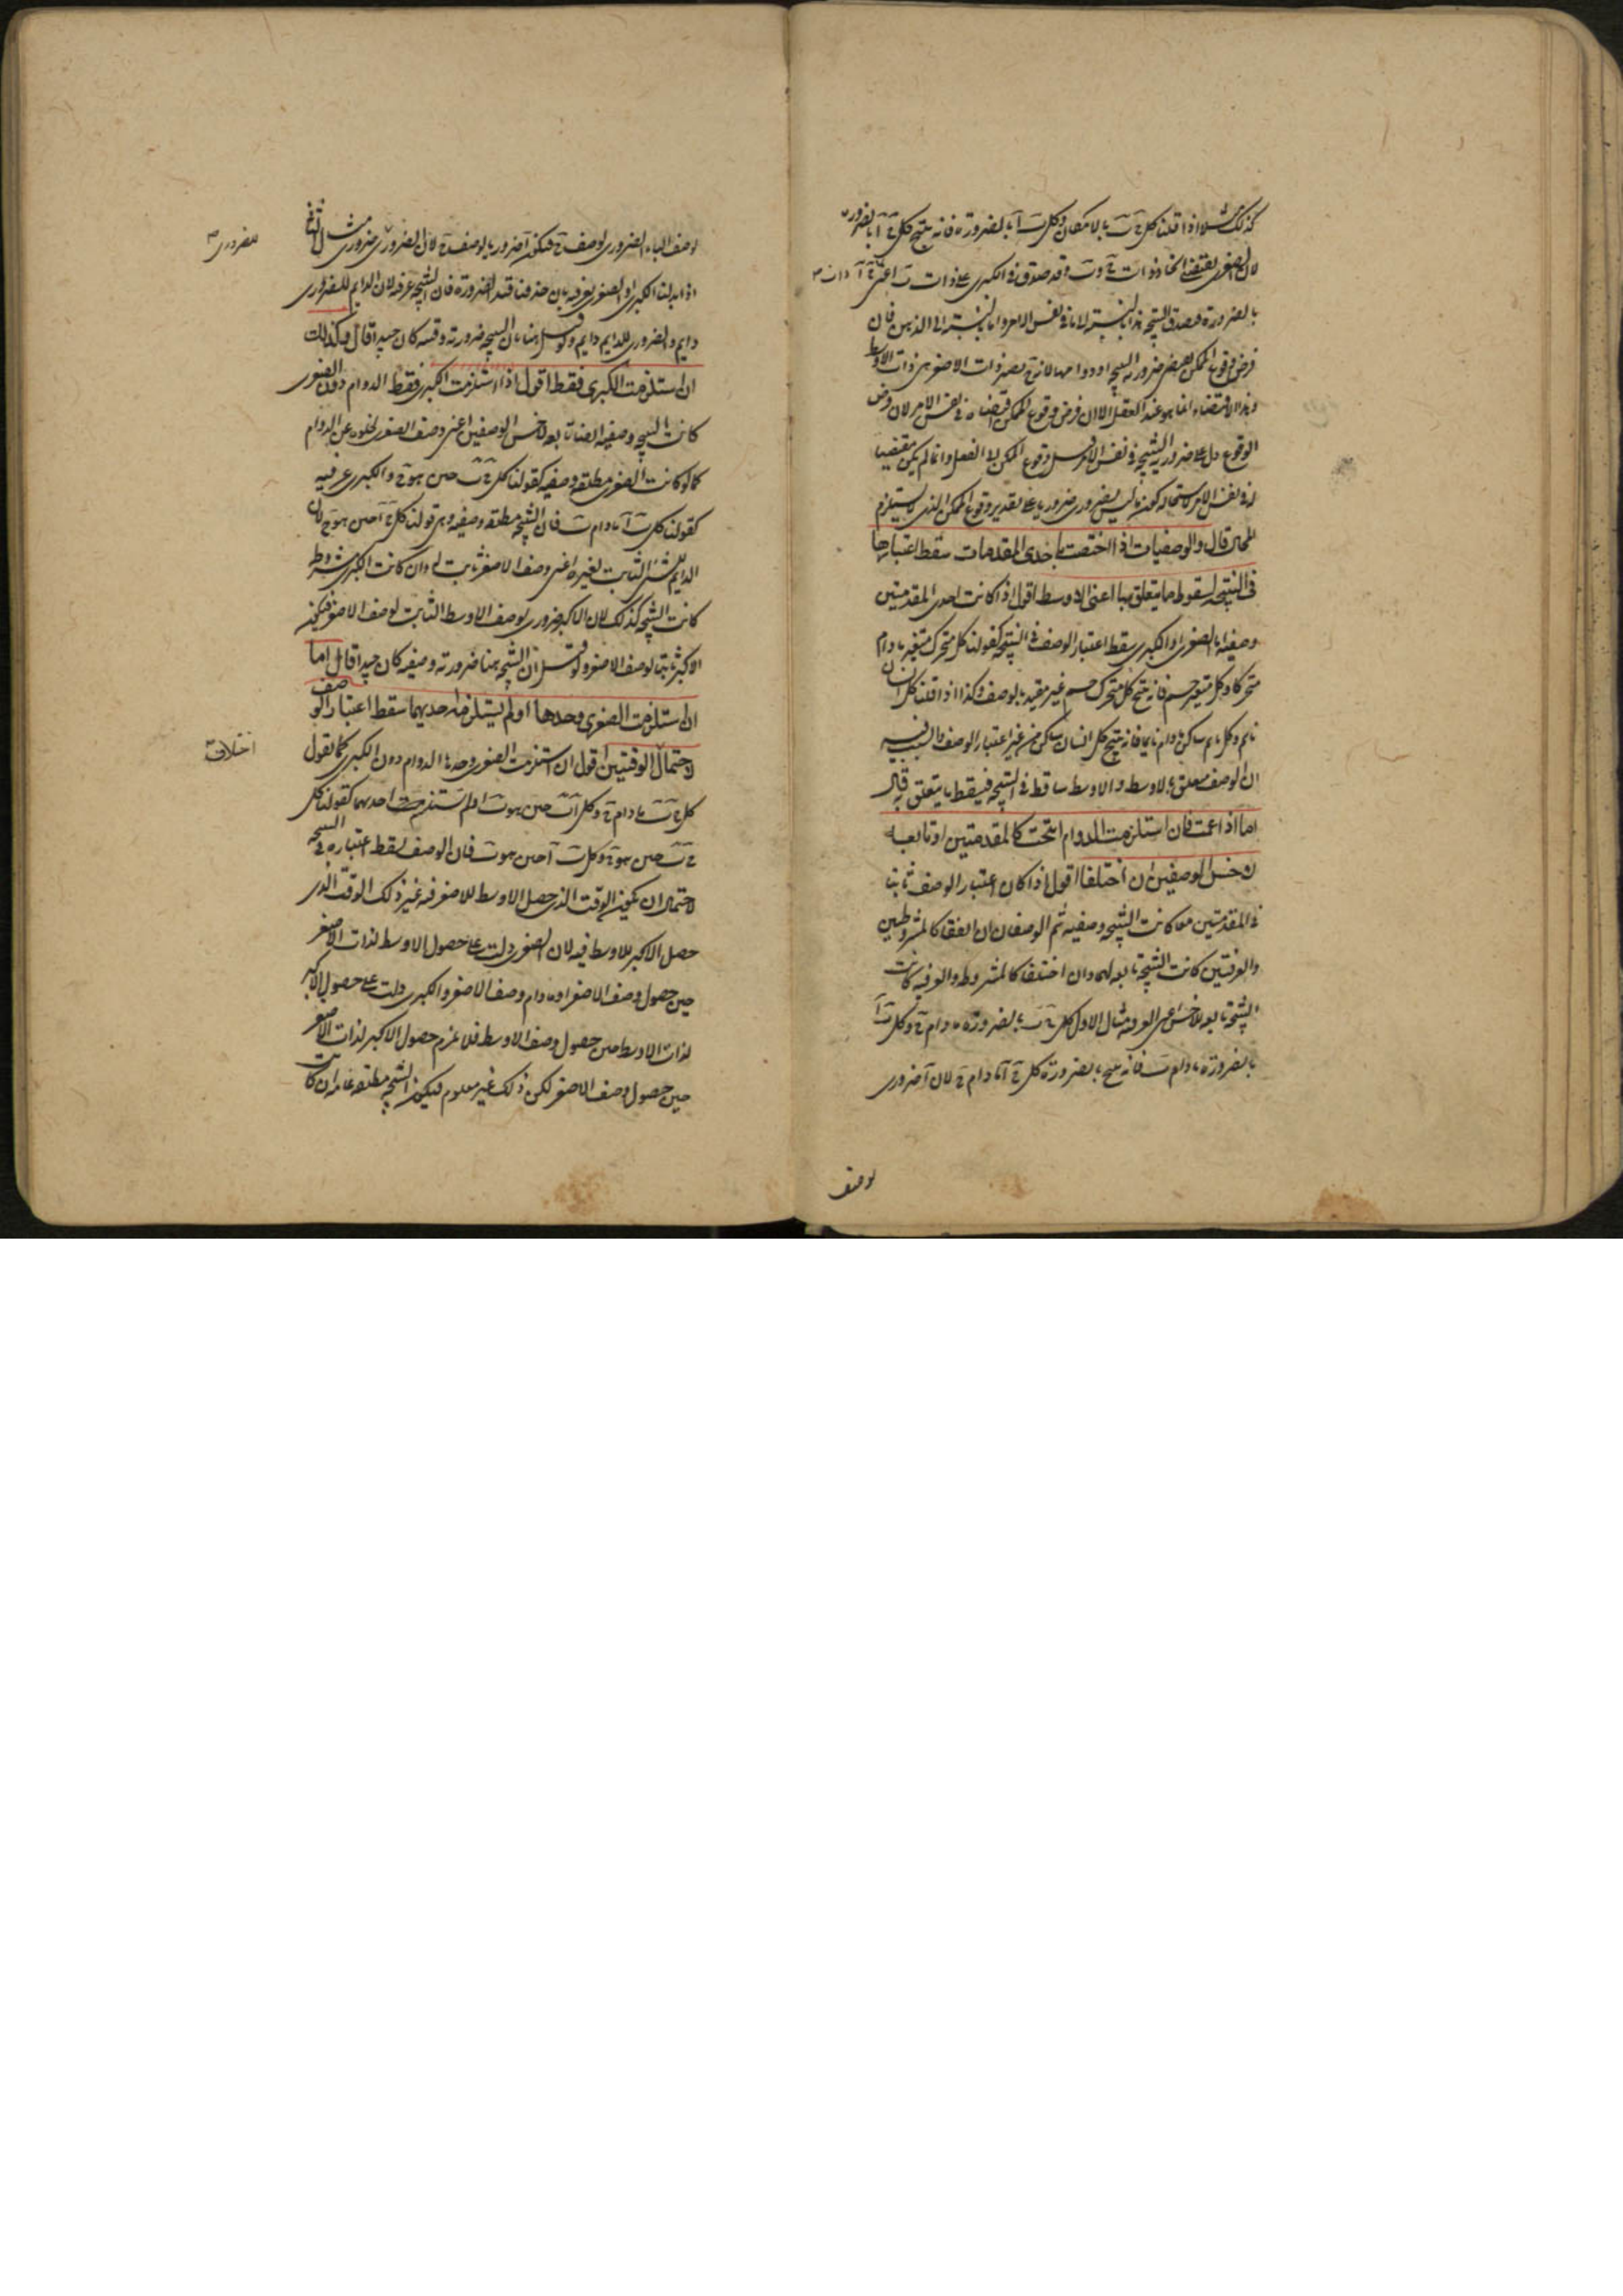 كذلك مثلا اذا قلنا كل ج ب بالامكان وكل ب ا بالضرورة فانه ينتج كل ج ا بالضرورة
لان الصغرى تقتضى اتحاد ذوات ج و ب وقد صدق فى الكبرى على ذات ب اعنى ج ا
بالضرورة فيصدق النتيجة هذا بالنسبة الى ما فى نفس الامر واما بالنسبة الى الذهن فان
فرض وقوع الممكن ضرورية النتيجة او دوامها لانه ح يصير ذات الاصغر من ذات الاوسط
وهذا الاقتضاء انما هو عند العقل الا ان فرض وقوع الممكن اقتضاه فى نفس الامر لان فرض
الوقوع دل على ضرورية النتيجة فى نفس الامر وقوع الممكن الى الفعل وانما لم يكن مقتضيا
له فى نفس الامر لاستحالة كون ما ليس بضرورى ضروريا على تقدير وقوع الممكن الذى لا يستلزم
المحال قال والوصفيات اذا اختصت باحدى المقدمات سقط اعتبارها
فى النتيجة لسقوط ما يتعلق بها اعنى الاوسط اقول اذا كانت احدى المقدمتين
وصفية اما الصغرى او الكبرى سقط اعتبار الوصف فى النتيجة كقولنا كل متحرك متغير ما دام
متحركا وكل متغير جسم فانه ينتج كل متحرك جسم غير مقيد بالوصف وكذا اذا قلنا كل انسان
نايم وكل نايم ساكن ما دام نايما فانه ينتج كل انسان ساكن من غير اعتبار الوصف والسبب فيه
ان الوصف معلق بالاوسط والاوسط ساقط فى النتيجة فيسقط ما يتعلق به قال
اما اذا عمت فان استلزمت الدوام انتجت كالمقدمتين او تابعة
لاخس الوصفين ان اختلفا اقول اذا كان اعتبار الوصف ثابتا
فى المقدمتين معا كانت النتيجة وصفية ثم الوصفان ان اتفقا كالمشروطتين
والعرفيتين كانت النتيجة تابعة لهما وان اختلفا كالمشروطة والعرفية كانت
النتيجة تابعة للاخس اعنى العرفية مثال الاول كل ج ب بالضرورة ما دام ج وكل ب ا
بالضرورة ما دام ب فانه ينتج بالضرورة كل ج ا ما دام ج لان ا ضرورى
لوصف
لوصف الباء الضرورى لوصف ج فيكون ا ضروريا لوصف ج لان الضرورى للضرورى ضرورى مثال الثانى
للضرورى
اذا بدلنا الكبرى او الصغرى بعرفية بان حذفنا قيد الضرورة فان النتيجة عرفية لان الدايم للضرورى
دايم والضرورى للدايم دايم ولو قيل هنا بان النتيجة ضرورية وقتية كان جيدا قال وكذلك
ان استلزمت الكبرى فقط اقول اذا استلزمت الكبرى فقط الدوام دون الصغرى
كانت النتيجة وصفية ايضا تابعة لاخس الوصفين اعنى وصف الصغرى لخلوه عن الدوام
كما لو كانت الصغرى مطلقة وصفية كقولنا كل ج ب حين هو ج والكبرى عرفية
كقولنا كل ب ا ما دام ب فان النتيجة مطلقة وصفية وهى قولنا كل ج ا حين هو ج لان
الدايم للشئ الثابت لغيره اعنى وصف الاصغر ثابت له وان كانت الكبرى مشروطة
كانت النتيجة كذلك لان الاكبر ضرورى لوصف الاوسط الثابت لوصف الاصغر فيكون
الاكبر ثابتا لوصف الاصغر ولو قيل ان النتيجة هنا ضرورية وصفية كان جيدا قال اما
ان استلزمت الصغرى وحدها او لم يستلزمه احديهما سقط اعتبار الوصف
لاحتمال اختلاف الوقتين اقول ان استلزمت الصغرى وحدها الدوام دون الكبرى كما تقول
كل ج ب ما دام ج وكل ب ا حين هو ب او لم تستلزمه احديهما كقولنا كل
ج ب حين هو ج وكل ب ا حين هو ب فان الوصف يسقط اعتباره فى النتيجة
لاحتمال ان يكون الوقت الذى حصل الاوسط للاصغر فيه غير ذلك الوقت الذى
حصل الاكبر للاوسط فيه لان الصغرى دلت على حصول الاوسط لذات الاصغر
حين حصول وصف الاصغر او ما دام وصف الاصغر والكبرى دلت على حصول الاكبر
لذات الاوسط حين حصول وصف الاوسط فلا يلزم حصول الاكبر لذات الاصغر
حين حصول وصف الاصغر لكن ذلك غير معلوم فيكون النتيجة مطلقة عامة ان كانت